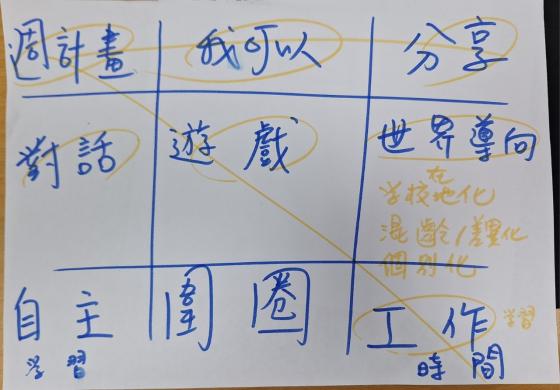 週計畫
我可以
分享
對話
遊戲
世界導向
在
學校地化
混齡/差異化
個別化
自主
學習
圍圈
工作
學習
時間